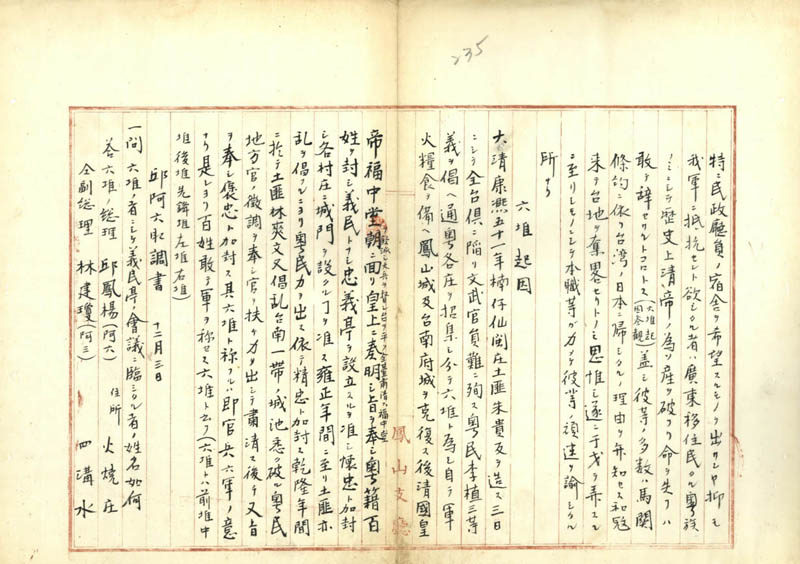 235
特ニ民政廳員ノ宿舎ヲ希望スルモノ出ツルヤ抑モ
我軍ニ抵抗セント欲シタル者ハ廣東移住民タル粤族
ノミニシテ歴史上清帝ノ為ソ産ヲ破リ命ヲ失フハ
敢テ辞セサルトコロトス(六堆起因参観)蓋シ彼等ノ多数ハ馬関
條約ニ依リ台湾ノ日本ニ帰シタル理由ヲ弁知セス和冦
来テ台地ヲ奪畧セリトノミ思惟シ遂ニ干戈ヲ弄スル
ニ至リシモノニシテ本職等ガカメテ彼等頑迷ヲ諭シタル
所ナリ
六堆起因
大清康熈五十一年楠仔仙閩庄土匪朱貴反ヲ造ス三日
ニシテ全台倶ニ陥リ文武官負難ニ殉ス粤民李植三等
義ヲ倡ヘ通粤各庄ヲ招集シ分テ六堆ト為シ自ラ軍
火糧食ヲ備ヘ鳳山城及台南府城ヲ克復ス後清國皇
帝福中堂朝ニ面リ皇上ニ奏明シ旨ヲ奉シ粤籍百
姓ヲ封シ義民トナシ忠義亭ヲ設立スルヲ准シ懐忠ト加封
シ各村庄ニ城門ヲ設クル丁ヲ准ス雍正年間ニ至リ土匪亦
乱ヲ倡フルニヨリ粤民力ヲ出ス依テ精忠ト加封ス乾隆年間
ニ於テ土匪林爽文又倡乱台南一帯ノ城池悉ク破ル粤民
地方官ノ徴調ヲ奉シ官ヲ扶ケ力ヲ出シテ肅清ス後チ又旨
ヲ奉シ褒忠ト加封ス其六堆ト称フルハ即官兵六軍ノ意
ナリ是レヨリ百姓敢テ軍ヲ称セス六堆トナク(六堆トハ前堆中
堆後堆先鋒堆左堆右堆)
邱阿六取調書 十二月三日
一問 六堆ノ者ニシテ義民亭ノ會議ニ臨ミタル者ノ姓名如何
答六堆ノ総理 邱鳳楊(阿六) 住所 火燒庄
仝副総理 林建瓊(阿三) 四溝水
鳳山支廳